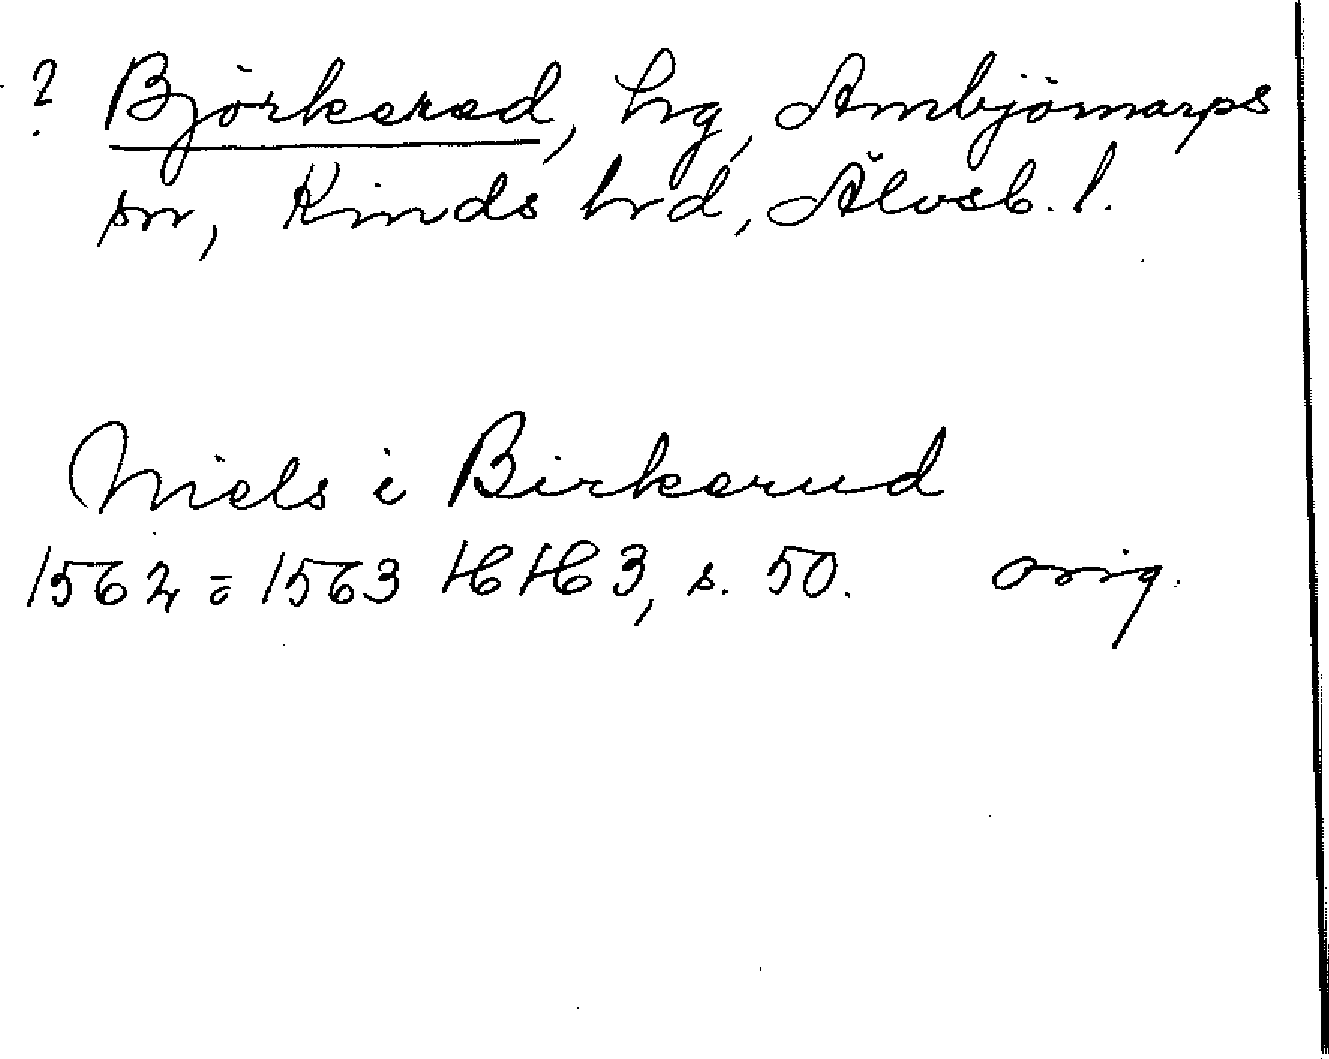 ? Björkered, hg, Ambjörnarps
sn, Kinds hrd, Älvsb. l.
Niels i Birkerud
1562 = 1563 HH 3, s. 50. orig.